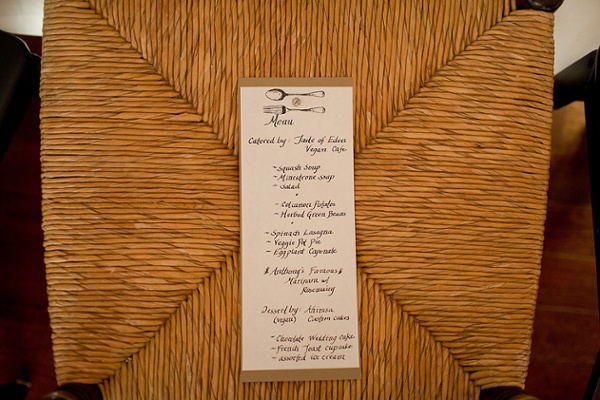 Menu
Catered by: Taste of Eden
Vegan Cafe
~Squash Soup
~Minestrone Soup
~Salad
~Colcannon Potatoes
~Herbed Green Beans
~Spinach Lasagna
~Veggie Pot Pie
~Eggplant Caponate
Anthony's Famous
Marinara w/
Rosemary
Dessert by:
(vegan) Custom Cakes
~Chocolate Wedding Cake
~French Toast cupcake
~assorted ice cream